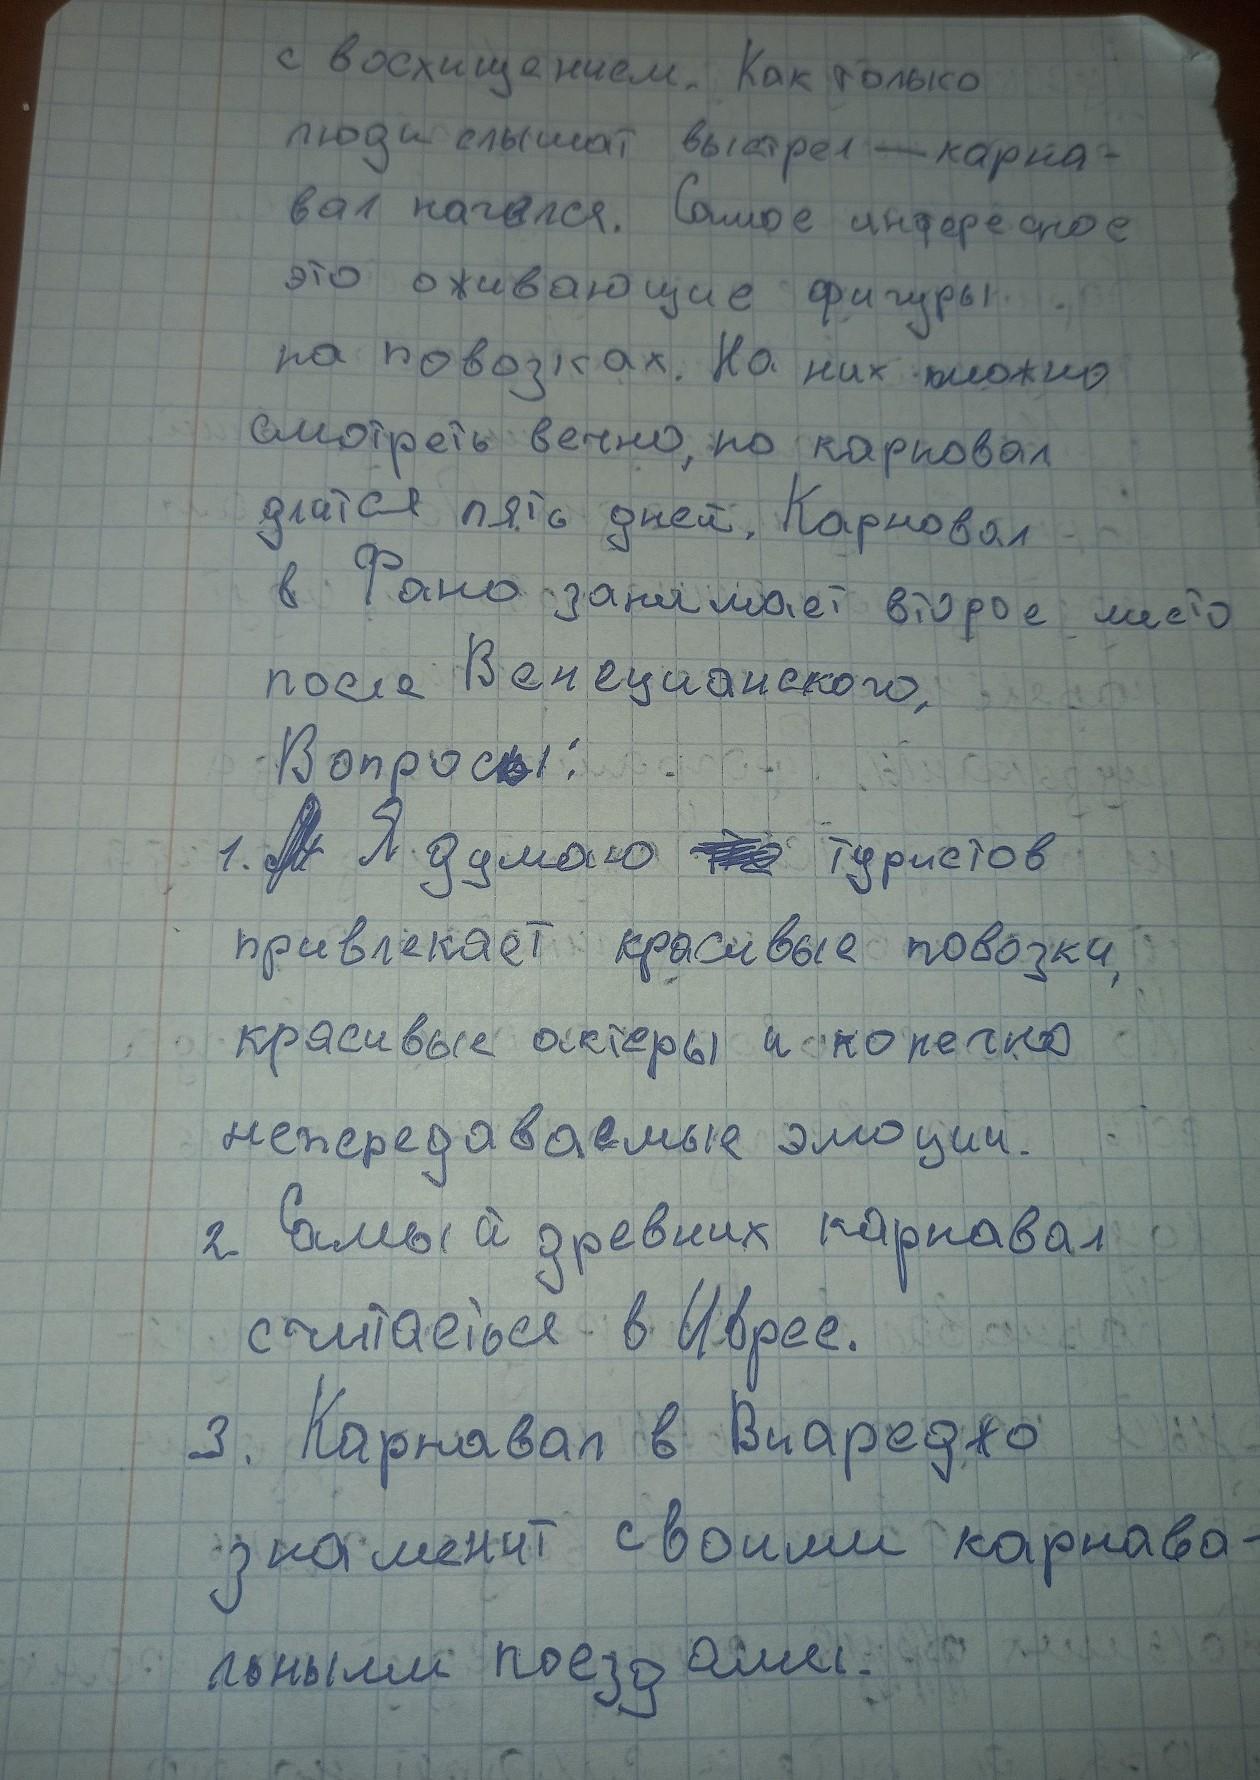 с восхищением. Как только
люди слышат выстрел — карна-
вал начался. Самое интересное
это оживающие фигуры
на повозках. На них можно
смотреть вечно, но карновал
длится пять дней. Карновал
в Фано занимает второе место
после Венецианского.
Вопросы:
1. Я думаю туристов
привлекает красивые повозки,
красивые актеры и конечно
непередаваемые эмоции.
2. Самый древних карнавал
считаеться в Иврее.
3. Карнавал в Виареджо
знаменит своими карнава-
льными поездами.